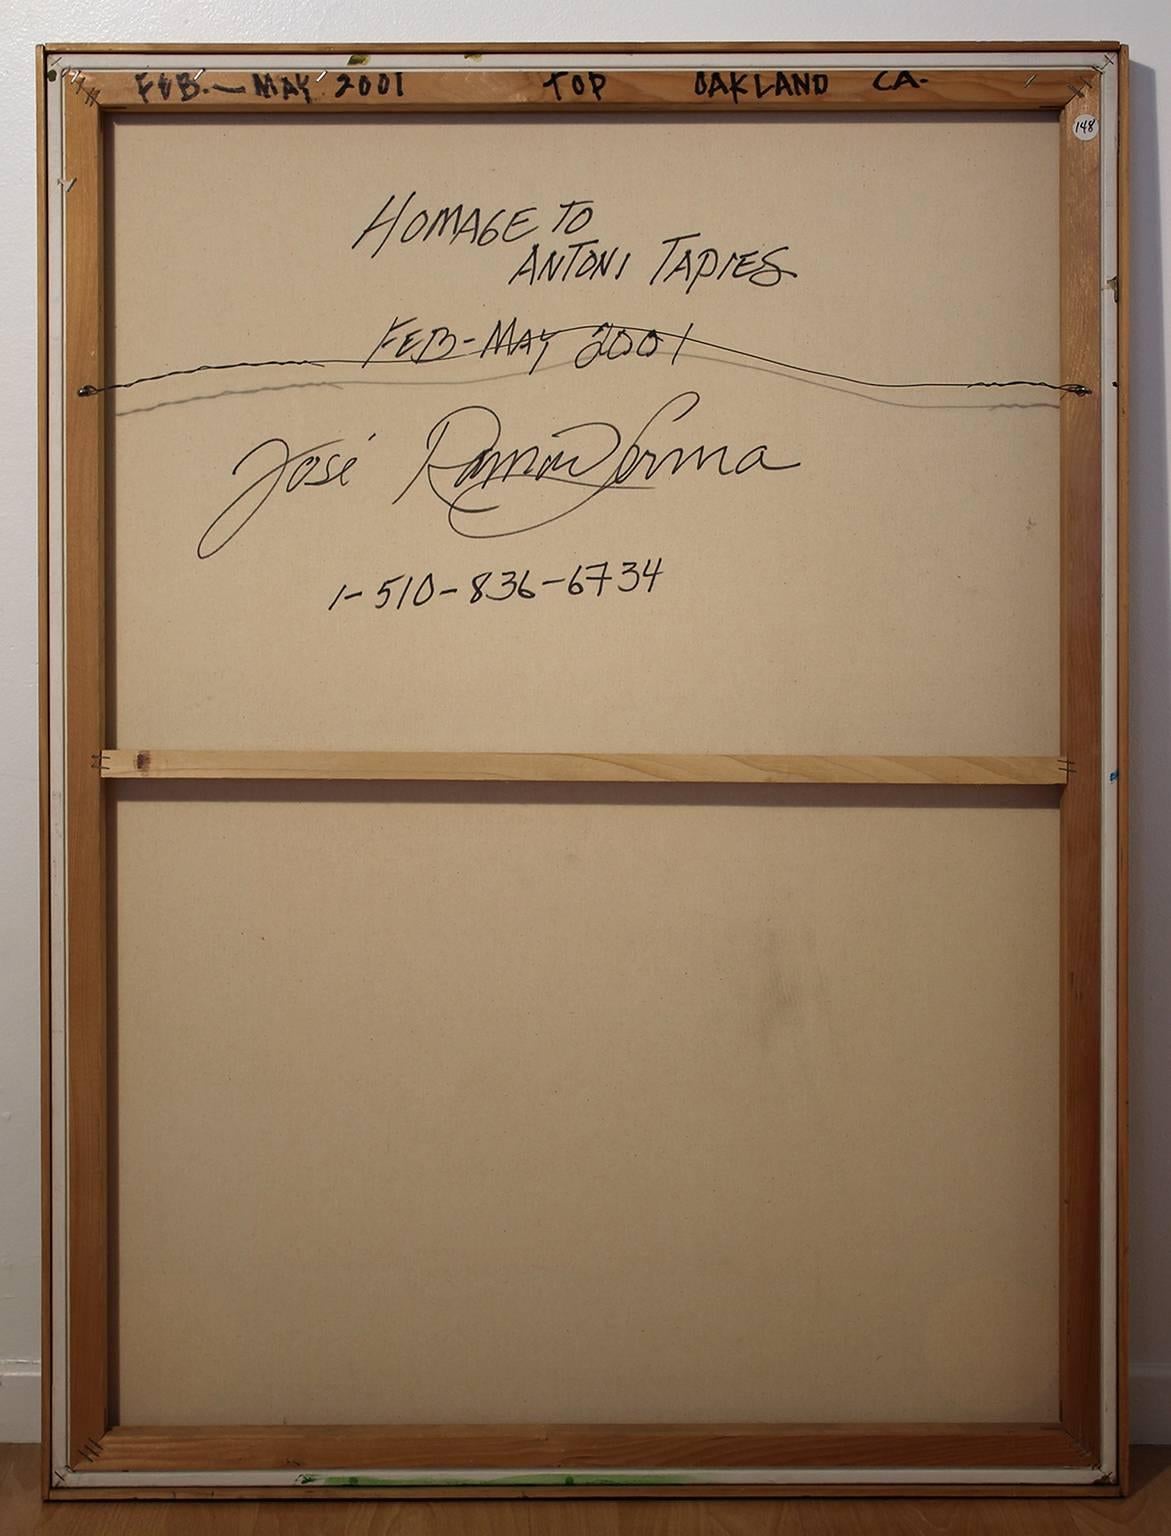 FEB.—MAY 2001 TOP OAKLAND CA.
148
HOMAGE TO
ANTONI TAPIES
FEB-MAY 2001
José Ramón Lerma
1-510-836-6734